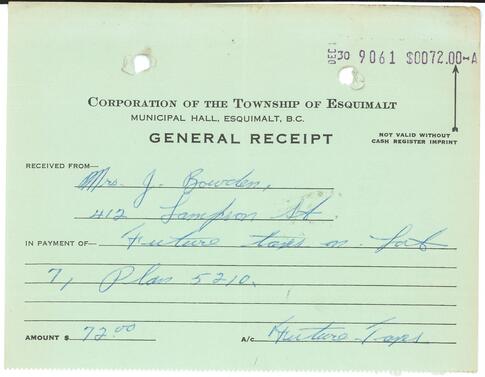 DEC 30 9061 $0072.00-A
CORPORATION OF THE TOWNSHIP OF ESQUIMALT
MUNICIPAL HALL, ESQUIMALT, B.C.
GENERAL RECEIPT
NOT VALID WITHOUT
CASH REGISTER IMPRINT
RECEIVED FROM— Mrs. J. Bowden,
412 Lampson St.
IN PAYMENT OF— Future taxes on Lot
7, Plan 5210.
AMOUNT $ 72.00 A/C Future Taxes